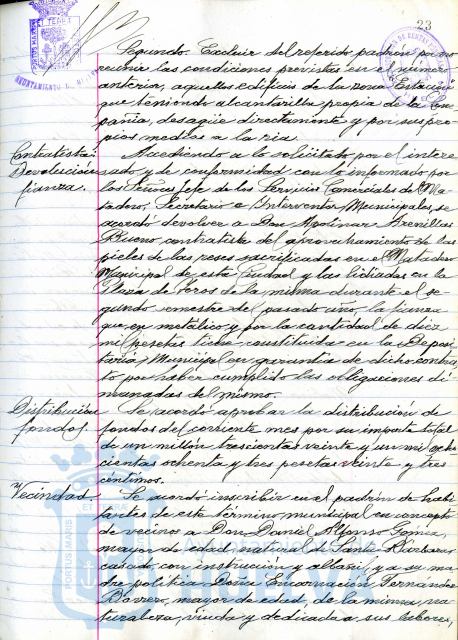 23
PORTUS MARIS ET TERRE
AYUNTAMIENTO
Segundo. Excluir del referido padrón por no
reunir las condiciones previstas en el número
anterior, aquellos edificios de la zona Estación
que teniendo alcantarilla propia de la Com-
pañía, desagüe directamente y por sus pro-
pios medios a la ria.
Contratista:
Devolución
fianza.
Accediendo a lo solicitado por el intere-
sado y de conformidad con lo informado por
los Señores Jefe de los Servicios Comerciales del Ma-
tadero, Secretario e Interventor Municipales, se
acordó devolver a Don Apolinar Arenillas
Bueno contratista del aprovechamiento de las
pieles de las reses sacrificadas en el Matadero
Municipal de esta Ciudad y las lidiadas en la
Plaza de Toros de la misma durante el se-
gundo semestre del pasado año, la fianza
que en metálico y por la cantidad de diez
mil pesetas tiene constituida en la Deposi-
taría Municipal en garantía de dicho contra-
to por haber cumplido las obligaciones di-
manadas del mismo.
Distribución
fondos.
Se acordó aprobar la distribución de
fondos del corriente mes por su importe total
de un millón trescientas veinte y un mil ocho-
cientas ochenta y tres pesetas veinte y tres
centimos.
Vecindad.
Se acordó inscribir en el padrón de habi-
tantes de este término municipal en concepto
de vecinos a Don Daniel Alfonso Gómez,
mayor de edad, natural de Santa Barbara
casado, con instrucción y albañil, y a su ma-
dre política Doña Encarnación Fernández
Borrero, mayor de edad, de la misma na-
turaleza, viuda y dedicada a sus labores,
PORTUS MARIS
HUELVA